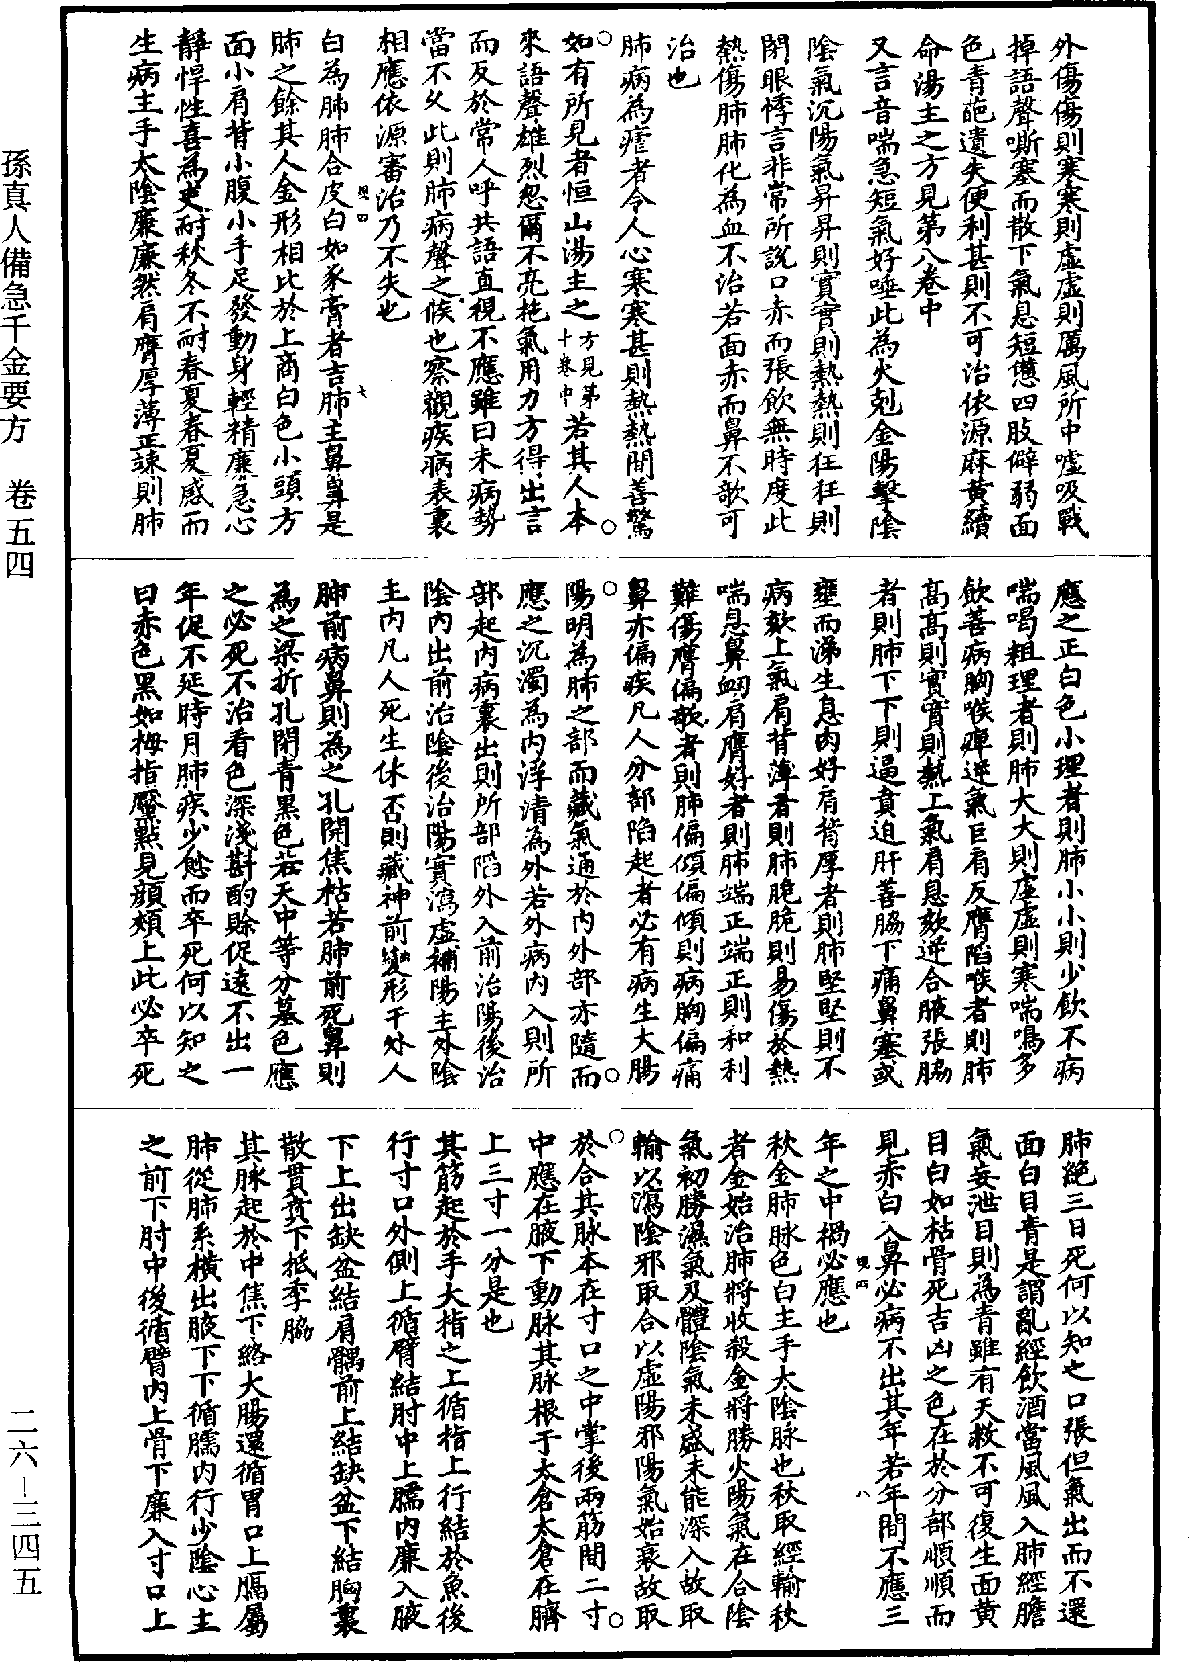 孫真人備急千金要方　卷五四
二六－三四五
外傷傷則寒寒則虛虛則厲風所中噓吸戰
掉語聲嘶塞而散下氣息短憊四肢僻弱面
色青葩遺失便利甚則不可治依源麻黃續
命湯主之方見第八卷中
又言音喘急短氣好唾此為火剋金陽擊陰
陰氣沉陽氣昇昇則實實則熱熱則狂狂則
閉眼悸言非常所說口赤而張飲無時度此
熱傷肺肺化為血不治若面赤而鼻不欹可
治也
肺病為瘧者令人心寒寒甚則熱熱間善驚
如有所見者恒山湯主之方見第十卷中若其人本
來語聲雄烈忽爾不亮拖氣用力方得出言
而反於常人呼共語直視不應雖曰未病勢
當不久此則肺病聲之候也察觀疾病表裏
相應依源審治乃不失也
白為肺肺合皮白如豕膏者吉肺主鼻鼻是
肺之餘其人金形相比於上商白色小頭方
面小肩背小腹小手足發動身輕精廉急心
靜悍性喜為吏耐秋冬不耐春夏春夏感而
生病主手太陰廉廉然肩膺厚薄正竦則肺
應之正白色小理者則肺小小則少飲不病
喘喝粗理者則肺大大則虛虛則寒喘鳴多
飲善病胸喉痺逆氣巨肩反膺陷喉者則肺
高高則實實則熱上氣肩息欬逆合腋張脇
者則肺下下則逼賁迫肝善脇下痛鼻塞或
壅而涕生息肉好肩背厚者則肺堅堅則不
病欬上氣肩背薄者則肺脆脆則易傷於熱
喘息鼻衄肩膺好者則肺端正端正則和利
難傷膺偏欹者則肺偏傾偏傾則病胸偏痛
鼻亦偏疾凡人分部陷起者必有病生大腸
陽明為肺之部而藏氣通於內外部亦隨而
應之沉濁為內浮清為外若外病內入則所
部起內病裏出則所部陷外入前治陽後治
陰內出前治陰後治陽實瀉虛補陽主外陰
主內凡人死生休否則藏神前變形于外人
肺前病鼻則為之孔開焦枯若肺前死鼻則
為之梁折孔閉青黑色若天中等分墓色應
之必死不治看色深淺斟酌賒促遠不出一
年促不延時月肺疾少愈而卒死何以知之
曰赤色黑如拇指黶點見顏頰上此必卒死
肺絕三日死何以知之口張但氣出而不還
面白目青是謂亂經飲酒當風風入肺經膽
氣妄泄目則為青雖有天救不可復生面黃
目白如枯骨死吉凶之色在於分部順順而
見赤白入鼻必病不出其年若年間不應三
年之中禍必應也
秋金肺脉色白主手太陰脉也秋取經輸秋
者金始治肺將收殺金將勝火陽氣在合陰
氣初勝濕氣及體陰氣未盛未能深入故取
輸以瀉陰邪取合以虛陽邪陽氣始衰故取
於合其脉本在寸口之中掌後兩筋間二寸
中應在腋下動脉其脉根于太倉太倉在臍
上三寸一分是也
其筋起於手大指之上循指上行結於魚後
行寸口外側上循臂結肘中上臑內廉入腋
下上出缺盆結肩髃前上結缺盆下結胸裏
散貫賁下抵季脇
其脉起於中焦下絡大腸還循胃口上膈屬
肺從肺系橫出腋下下循臑內行少陰心主
之前下肘中後循臂內上骨下廉入寸口上